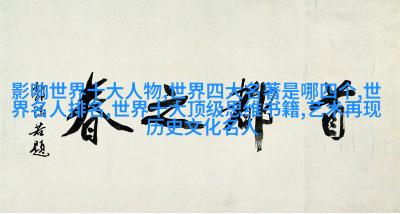 影响世界十大人物,世界四大名著是哪四个,世
界名人排名,世界十大顶级思维书籍,艺术再现
历史文化名人
首都之春
郭沫若题